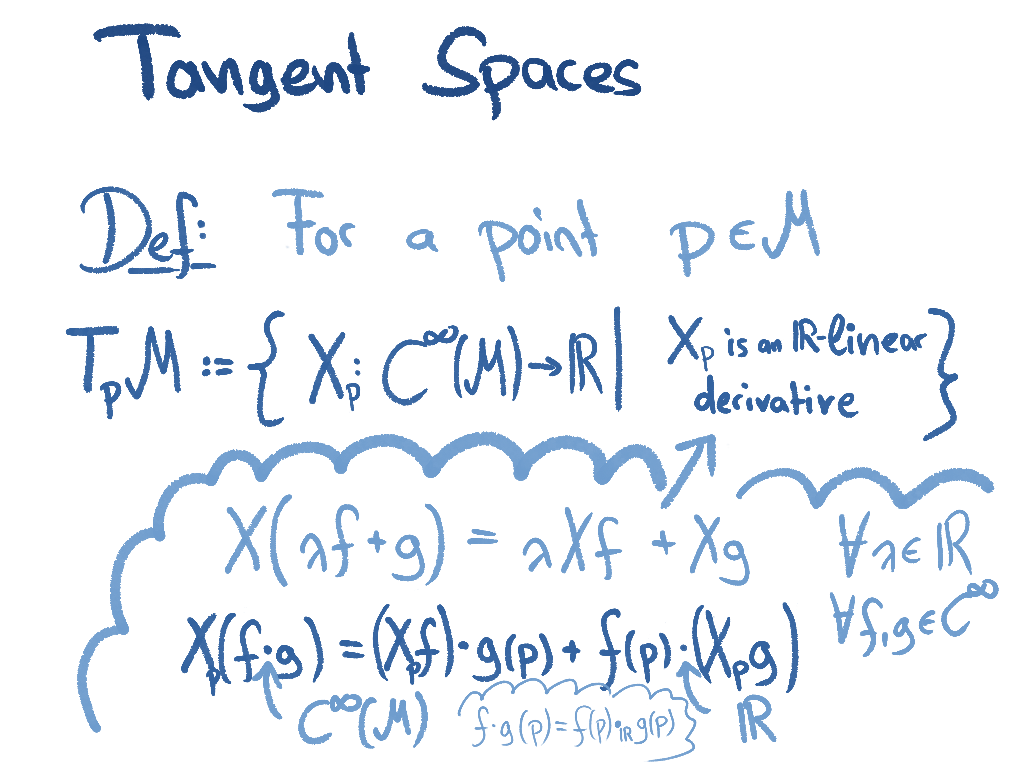 Tangent Spaces
Def: For a point p ∈ M
TₚM := { Xₚ: C^∞(M) → ℝ | Xₚ is an ℝ-linear derivative }
X(λf + g) = λXf + Xg ∀λ ∈ ℝ
Xₚ(f·g) = (Xₚf)·g(p) + f(p)·(Xₚg) ∀f,g ∈ C^∞
C^∞(M) f·g(p) = f(p)·_ℝ g(p) ℝ